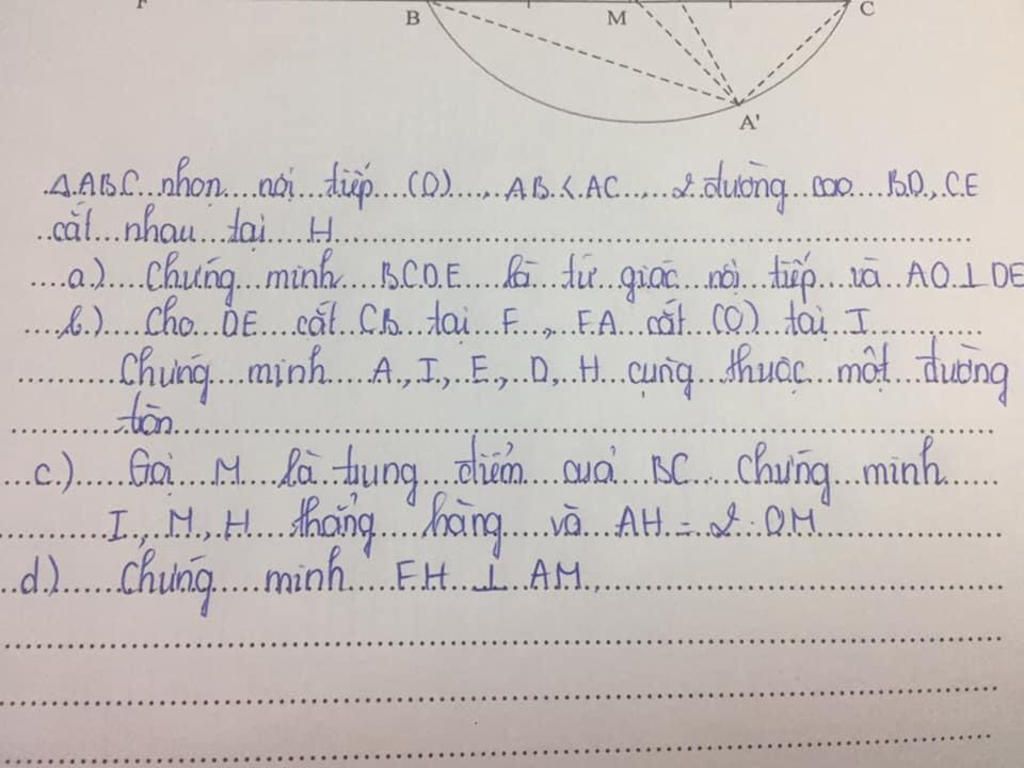 F B M C
A'
Δ ABC nhọn nội tiếp (O), AB < AC, 2 đường cao BD, CE
cắt nhau tại H
a) Chứng minh BCDE là tứ giác nội tiếp và AO ⊥ DE
b) Cho DE cắt CB tại F, FA cắt (O) tại I
Chứng minh A, I, E, D, H cùng thuộc một đường
tròn
c) Gọi M là trung điểm của BC. Chứng minh
I, M, H thẳng hàng và AH = 2.OM
d) Chứng minh FH ⊥ AM.